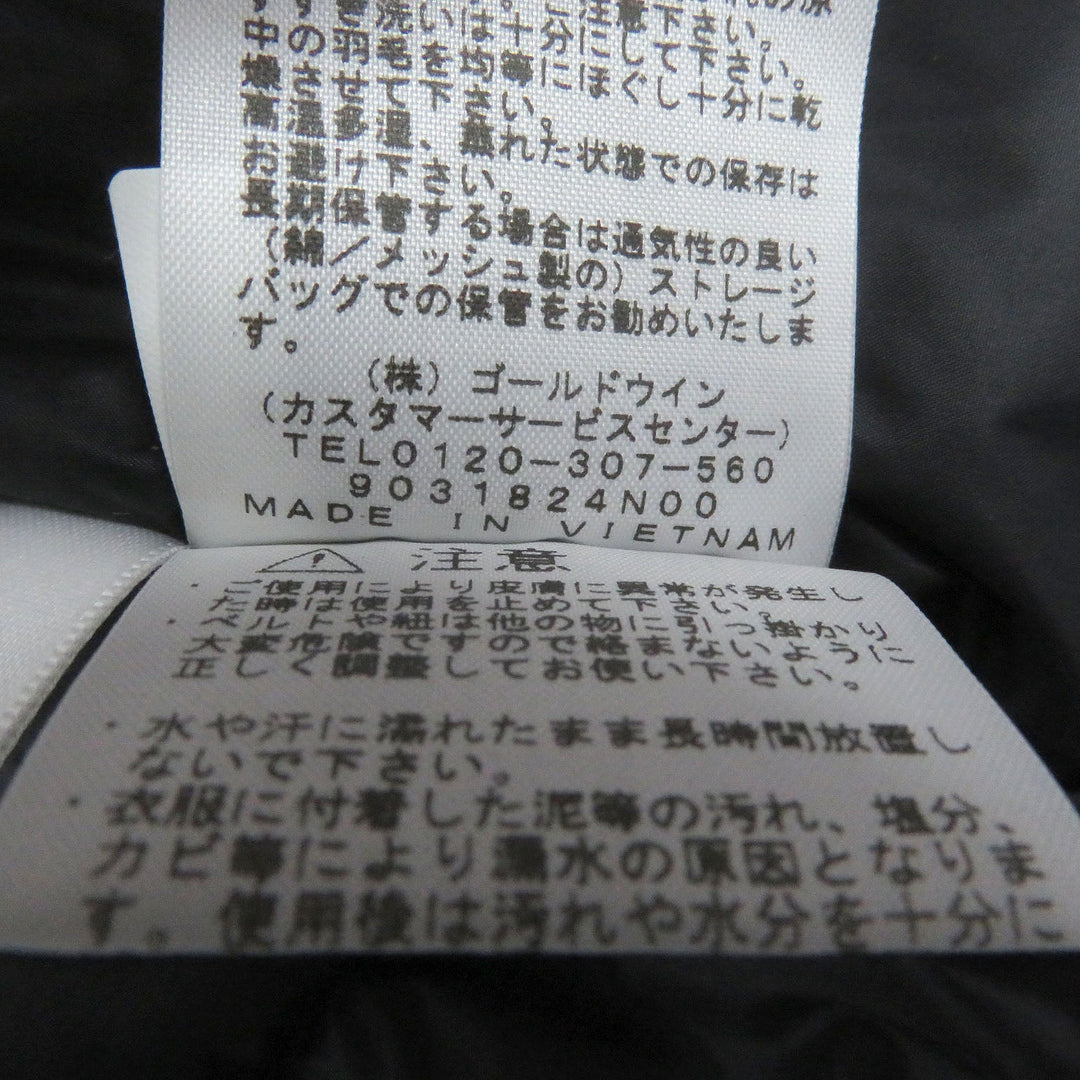 注意して下さい。
中のさ羽毛を均等にほぐし十分に乾
燥させて下さい。
高温多湿、蒸れた状態での保存は
お避け下さい。
長期保管する場合は通気性の良い
(綿/メッシュ製の)ストレージ
バッグでの保管をお勧めいたしま
す。
(株)ゴールドウイン
(カスタマーサービスセンター)
TEL0120-307-560
9031824N00
MADE IN VIETNAM
注意
・ご使用により皮膚に異常が発生し
た時は使用を止めて下さい。
・ベルトや紐は他の物に引っ掛かり
大変危険ですので絡まないように
正しく調整してお使い下さい。
・水や汗に濡れたまま長時間放置し
ないで下さい。
・衣服に付着した泥等の汚れ、塩分、
カビ等により漏水の原因となりま
す。使用後は汚れや水分を十分に